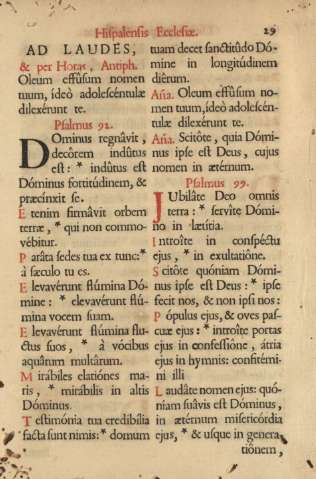 Hispalensis Ecclesiæ. 29
AD LAUDES,
& per Horas, Antiph.
Oleum effûsum nomen
tuum, ideò adolescéntulæ
dilexérunt te.
Psalmus 92.
DOminus regnâvit,
decôrem indûtus
est: * indûtus est
Dóminus fortitúdinem, &
præcinxit se.
Etenim firmâvit orbem
terræ, * qui non commo-
vébitur.
Parâta sedes tua ex tunc: *
à sæculo tu es.
Elevavérunt flúmina Dó-
mine: * elevavérunt flú-
mina vocem suam.
Elevavérunt flúmina flu-
ctus suos, * à vócibus
aquârum multârum.
Mirábiles elatiónes ma-
ris, * mirábilis in altis
Dóminus.
Testimónia tua credibília
facta sunt nimis: * domum
tuam decet sanctitûdo Dó-
mine in longitúdinem
diêrum.
Aña. Oleum effûsum no-
men tuum, ideò adolescén-
tulæ dilexérunt te.
Aña. Scitôte, quia Dómi-
nus ipse est Deus, cujus
nomen in ætérnum.
Psalmus 99.
JUbilâte Deo omnis
terra: * servîte Dómi-
no in lætítia.
Introîte in conspéctu
ejus, * in exultatiône.
Scitôte quóniam Dómi-
nus ipse est Deus: * ipse
fecit nos, & non ipsi nos:
Pópulus ejus, & oves pas-
cuæ ejus: * introîte portas
ejus in confessiône, átria
ejus in hymnis: confitémi-
ni illi
Laudâte nomen ejus: quó-
niam suâvis est Dóminus,
in ætérnum misericórdia
ejus, * & usque in genera-
tiônem,